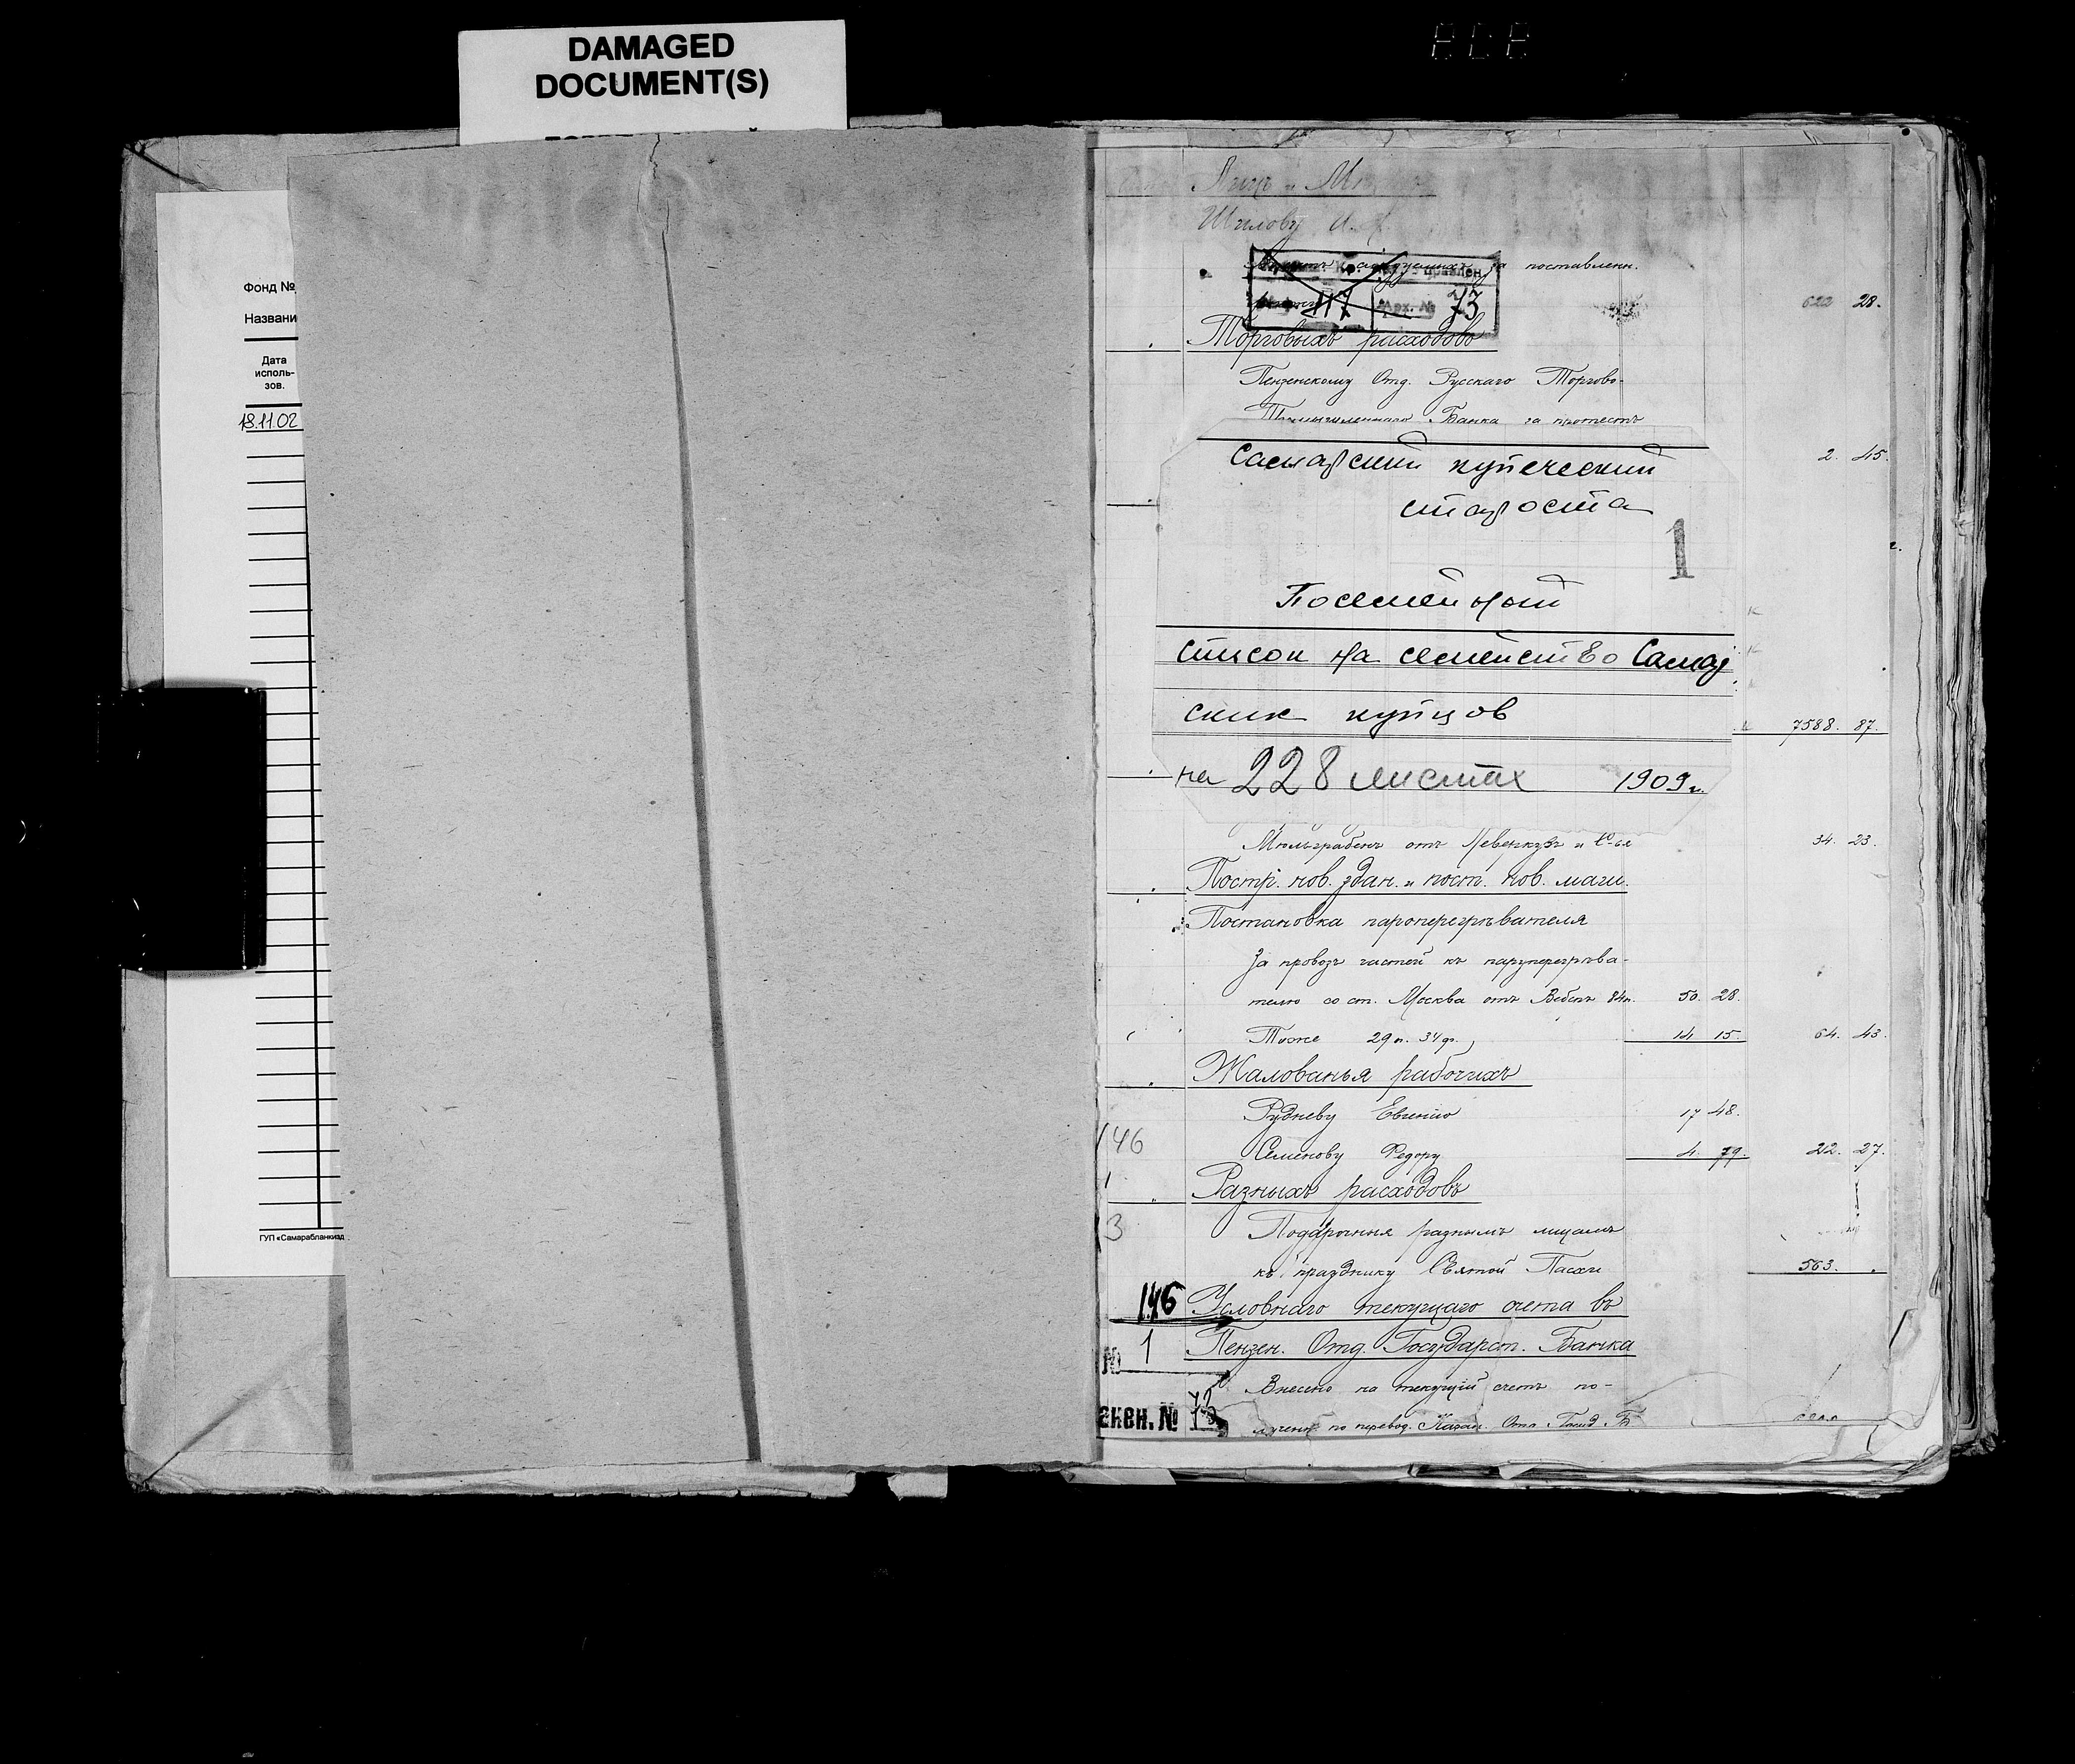 DAMAGED
DOCUMENT(S)
Фонд №
Названи
Дата
исполь-
зов.
18.11.02
ГУП «Самарабланкизд
Шилову И.
за поставленн.
117 Арх. № 73
622 28.
Торговыхъ расходовъ
Пензенскому Отд. Русскаго Торгово-
Промышленнаго Банка за протестъ
2. 45.
Самарский купеческий
староста
1
Посемейный
список на семейство Самар
ских купцов
7588. 87.
на 228 листах 1909 г.
Мюльграбенъ отъ Леверкузъ и Сья 34. 23.
Постр. нов. здан. и пост. нов. маши.
Постановка пароперегрѣвателя
За провозъ частей къ пароперегрѣва-
телю со ст. Москва отъ 84п. 50. 28.
Тоже 29п. 34ф. 14 15. 64. 43.
Жалованья рабочихъ
Рудневу Евгенію 17 48.
146
Семенову Федору 4. 79. 22. 27.
Разныхъ расходовъ
3
разнымъ лицамъ
къ празднику Святой Пасхи 563.
146
Условнаго текущаго счета въ
№ 1
Пензен. Отд. Государст. Банка
Внесено на текущій счетъ по-
инвн. №
лучено по перевод. Казан. Отд. Госуд. Б